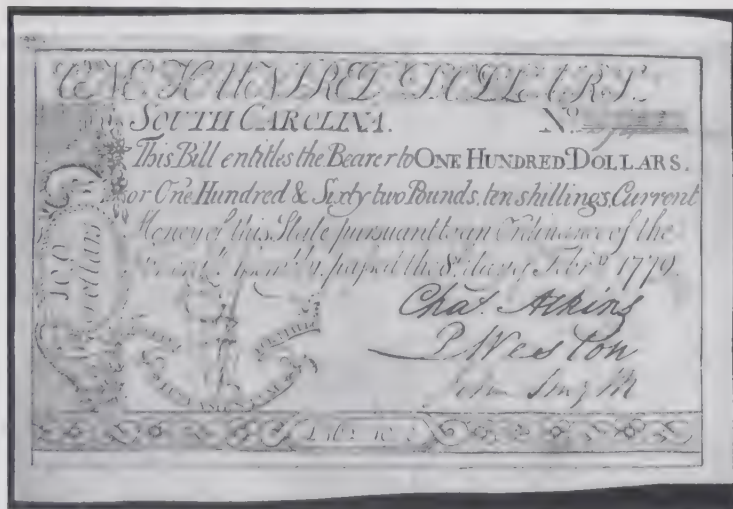 ONE HUNDRED DOLLARS.
SOUTH CAROLINA. No.
This Bill entitles the Bearer to ONE HUNDRED DOLLARS.
or One Hundred & Sixty two Pounds, ten shillings, Current
Money of this State pursuant to an Ordinance of the
passed the 8th day of Febry 1779.
100 Dollars
Chas. Atkins
P Weston
John Smyth